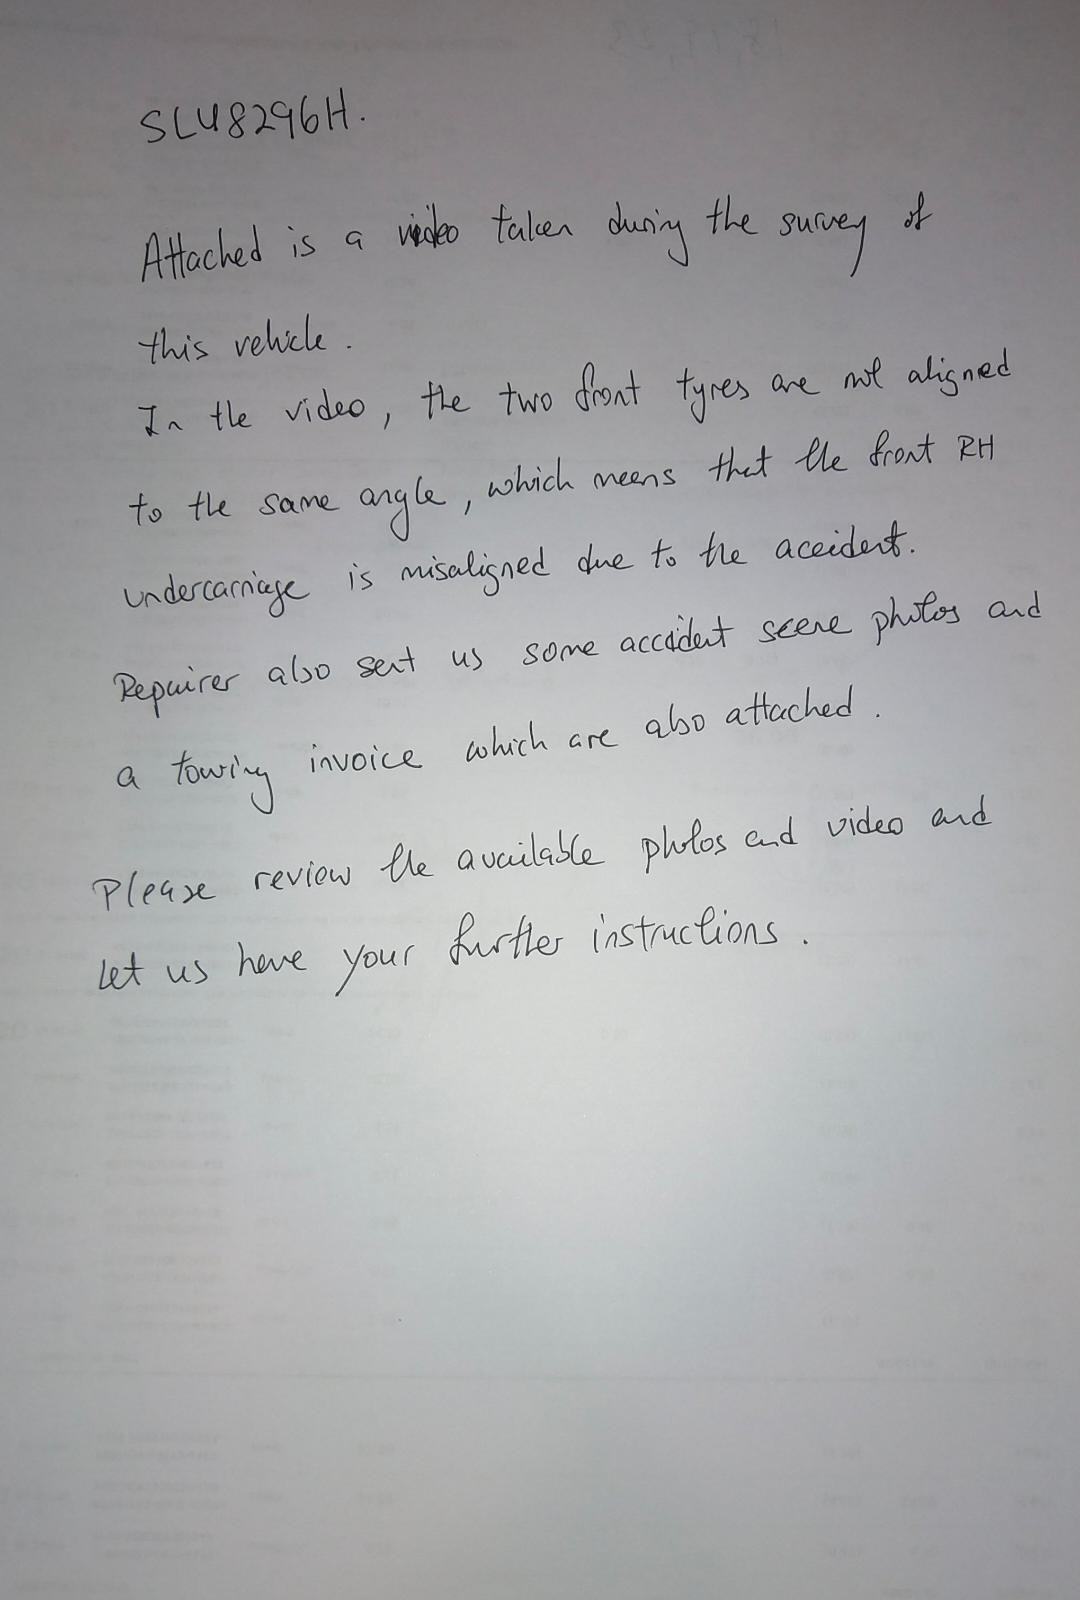 SLU8296H.
Attached is a video taken during the survey of
this vehicle.
In the video, the two front tyres are not aligned
to the same angle, which means that the front RH
undercarriage is misaligned due to the accident.
Repairer also sent us some accident scene photos and
a towing invoice which are also attached.
Please review the available photos and video and
let us have your further instructions.